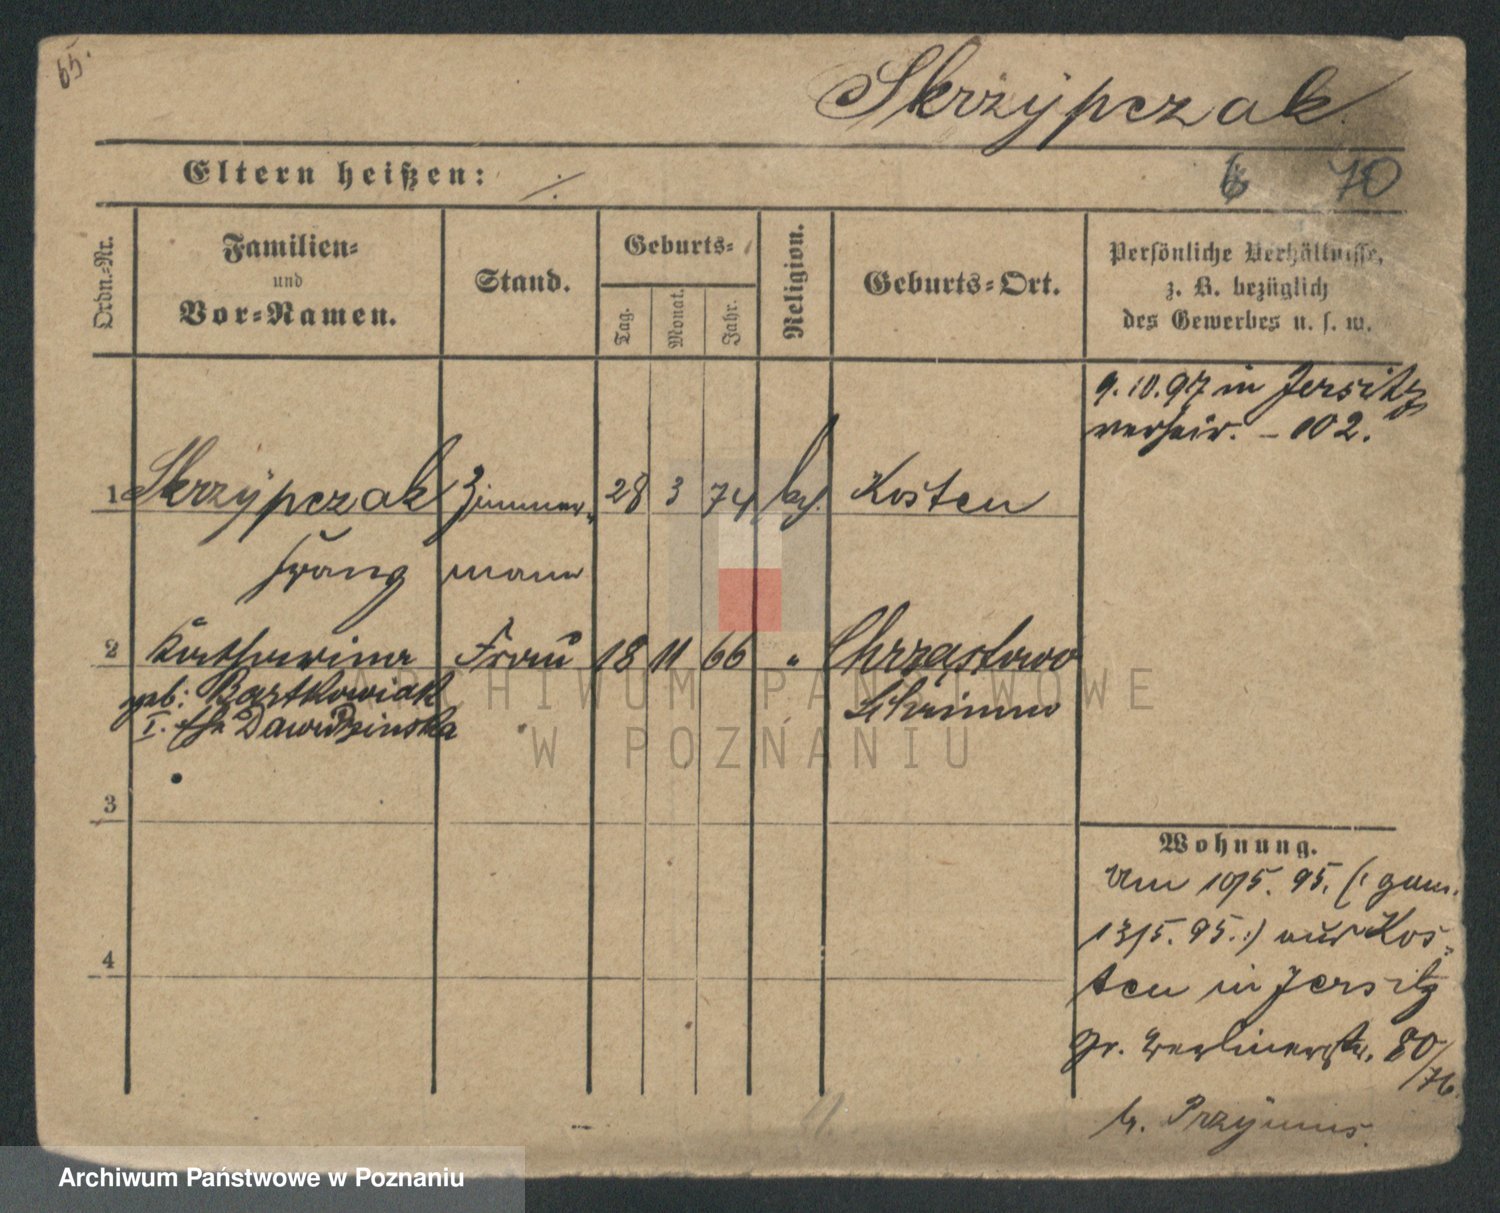 65.
Skrzypczak
Eltern heißen: ./.
6 70
Ordn.-Nr.
Familien-
und
Vor-Namen.
Stand.
Geburts-
Tag.
Monat.
Jahr.
Religion.
Geburts-Ort.
Persönliche Verhältnisse,
z. B. bezüglich
des Gewerbes u. s. w.
9.10.97 in Jersitz
verheir. – 102.
1 Skrzypczak Zimmer- 28 3 74 kath. Kosten
Franz mann
2 Katharina Frau 18 11 66 " Chrząstowo
geb: Bartkowiak Schrimm
I. Dawidzinska
3
4
Wohnung.
Am 10/5. 95. (: gem.
13/5. 95. :) aus Kos-
ten in Jersitz
Gr. Berlinerstr. 80/76.
b. Przymus.
ARCHIWUM PAŃSTWOWE
W POZNANIU
Archiwum Państwowe w Poznaniu